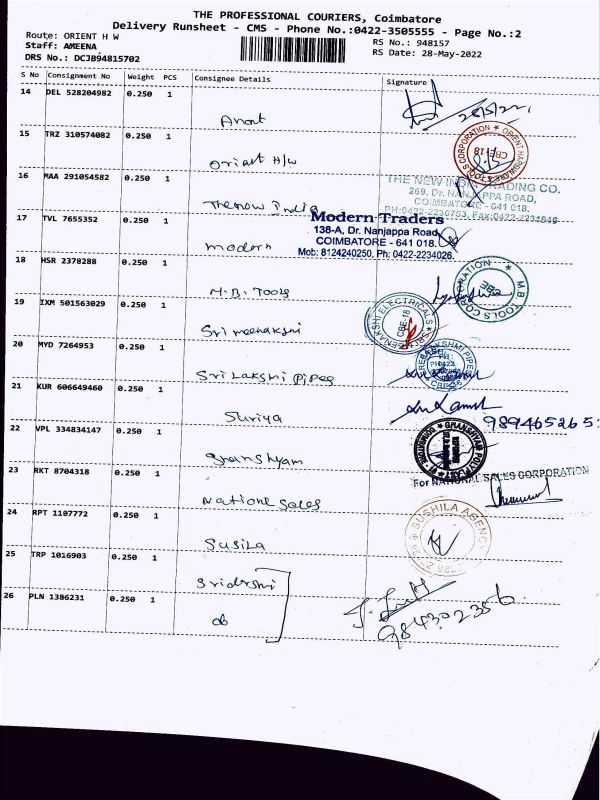 THE PROFESSIONAL COURIERS, Coimbatore
Delivery Runsheet - CMS - Phone No.:0422-3505555 - Page No.:2
Route: ORIENT H W
Staff: AMEENA
DRS No.: DCJB94815702
RS No.: 948157
RS Date: 28-May-2022
S No Consignment No Weight PCS Consignee Details Signature
14 DEL 528204982 0.250 1
Anant
15 TRZ 310574082 0.250 1
Orient H/W
ORIENT HARDWARE & TOOLS CORPORATION
CBE-18
16 MAA 291054582 0.250 1
The new India
THE NEW INDIA TRADING CO.
269, Dr. NANJAPPA ROAD,
COIMBATORE - 641 018.
PH:0422-2230753, Fax:0422-2231846
17 TVL 7655352 0.250 1
modern
Modern Traders
138-A, Dr. Nanjappa Road,
COIMBATORE - 641 018.
Mob: 8124240250, Ph: 0422-2234026.
18 HSR 2378288 0.250 1
M.B. Tools
M.B. TOOLS CORPORATION
CBE
19 IXM 501563029 0.250 1
Sri meenakshi
SRI MEENAKSHI ELECTRICALS
CBE-18
20 MYD 7264953 0.250 1
Sri Lakshmi Pipes
21 KUR 606649460 0.250 1
Suriya
22 VPL 334834147 0.250 1
Ghanshyam
23 RKT 8704318 0.250 1
National Sales
For NATIONAL SALES CORPORATION
24 RPT 1107772 0.250 1
Susila
SUSHILA AGENC
25 TRP 1016903 0.250 1
26 PLN 1386231 0.250 1
do
984302356